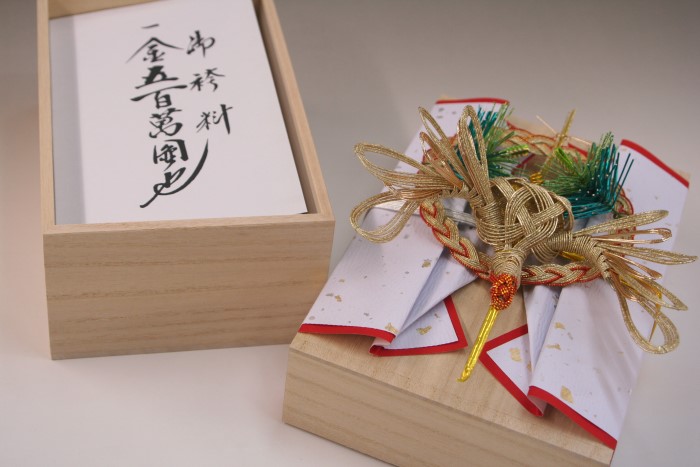 御袴料
一金五百萬圓也